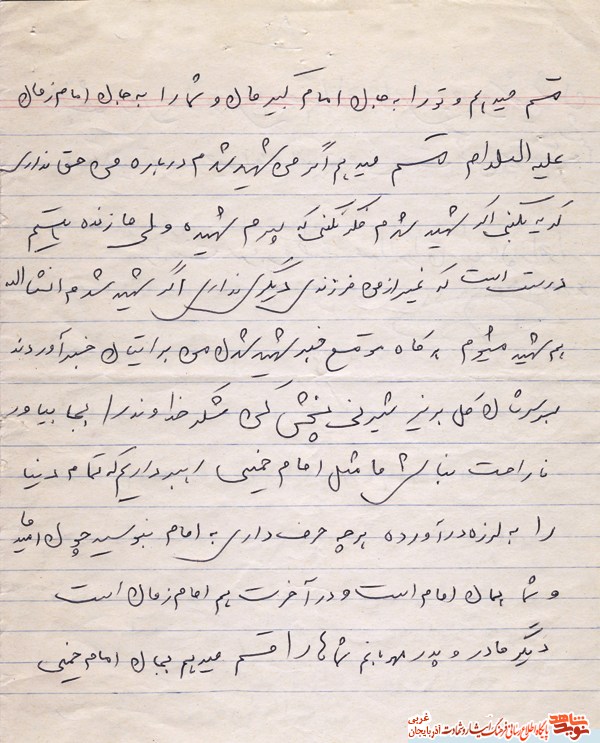 قسم میدهم و تو را به جان امام کبیرمان و شما را به جان امام زمان
علیه السلام قسم میدهم اگر من شهید شدم درباره من حق نداری
گریه بکنی اگر شهید شدم فکر نکنی که پسرم شهیده ولی ما زنده هستیم
درست است که غیر از من فرزندی دیگری نداری اگر شهید شدم انشااله
هم شهید میشوم هر گاه موقع خبر شهید شدن من برایتان خبر آوردند
بر سرتان گل بریز شیرنی پخش کن شکر خداوند را بجا بیاور
ناراحت نباش ما مثل امام خمینی رهبر داریم که تمام دنیا
را به لرزه درآورده هر چه حرف داری به امام بنویسید چون امید ما
و شما همان امام است و در آخرت هم امام زمان است
دیگر مادر و پدر مهربانم شماها را قسم میدهم بجان امام خمینی
نوید شاهد
پایگاه اطلاع رسانی فرهنگ ایثار و شهادت آذربایجان غربی